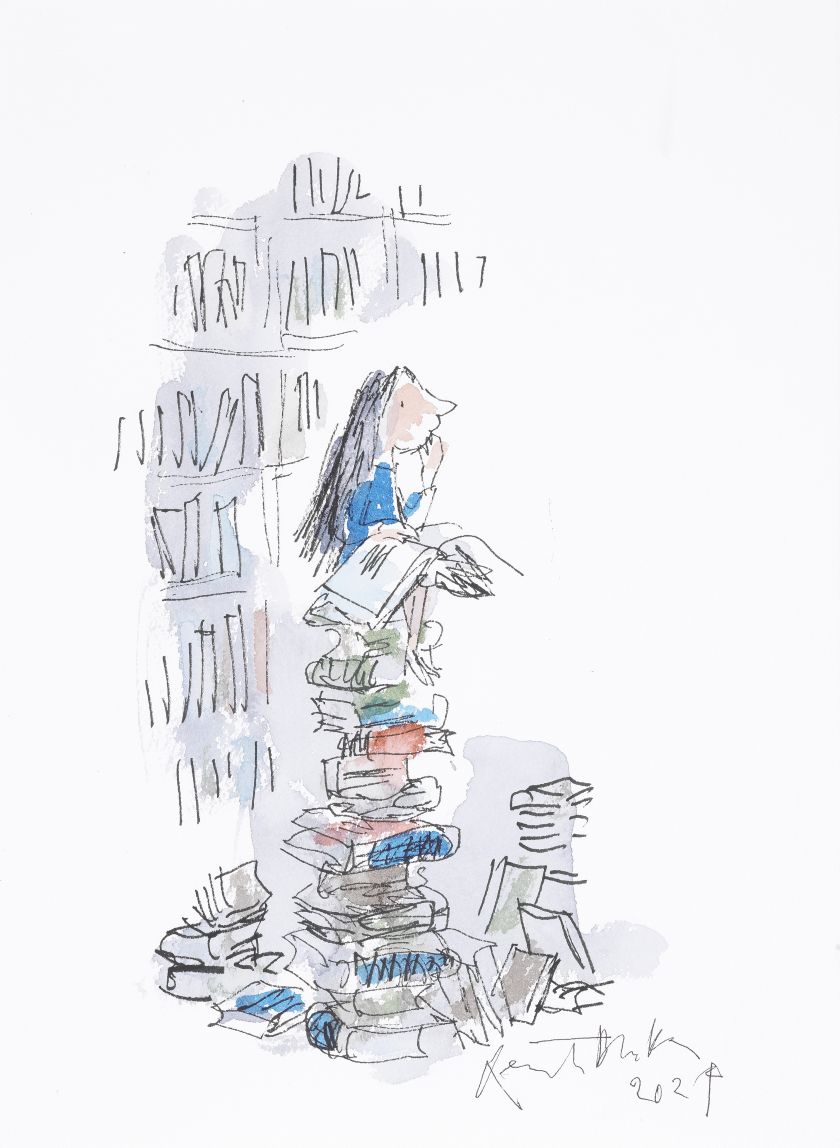 Quentin Blake
2024